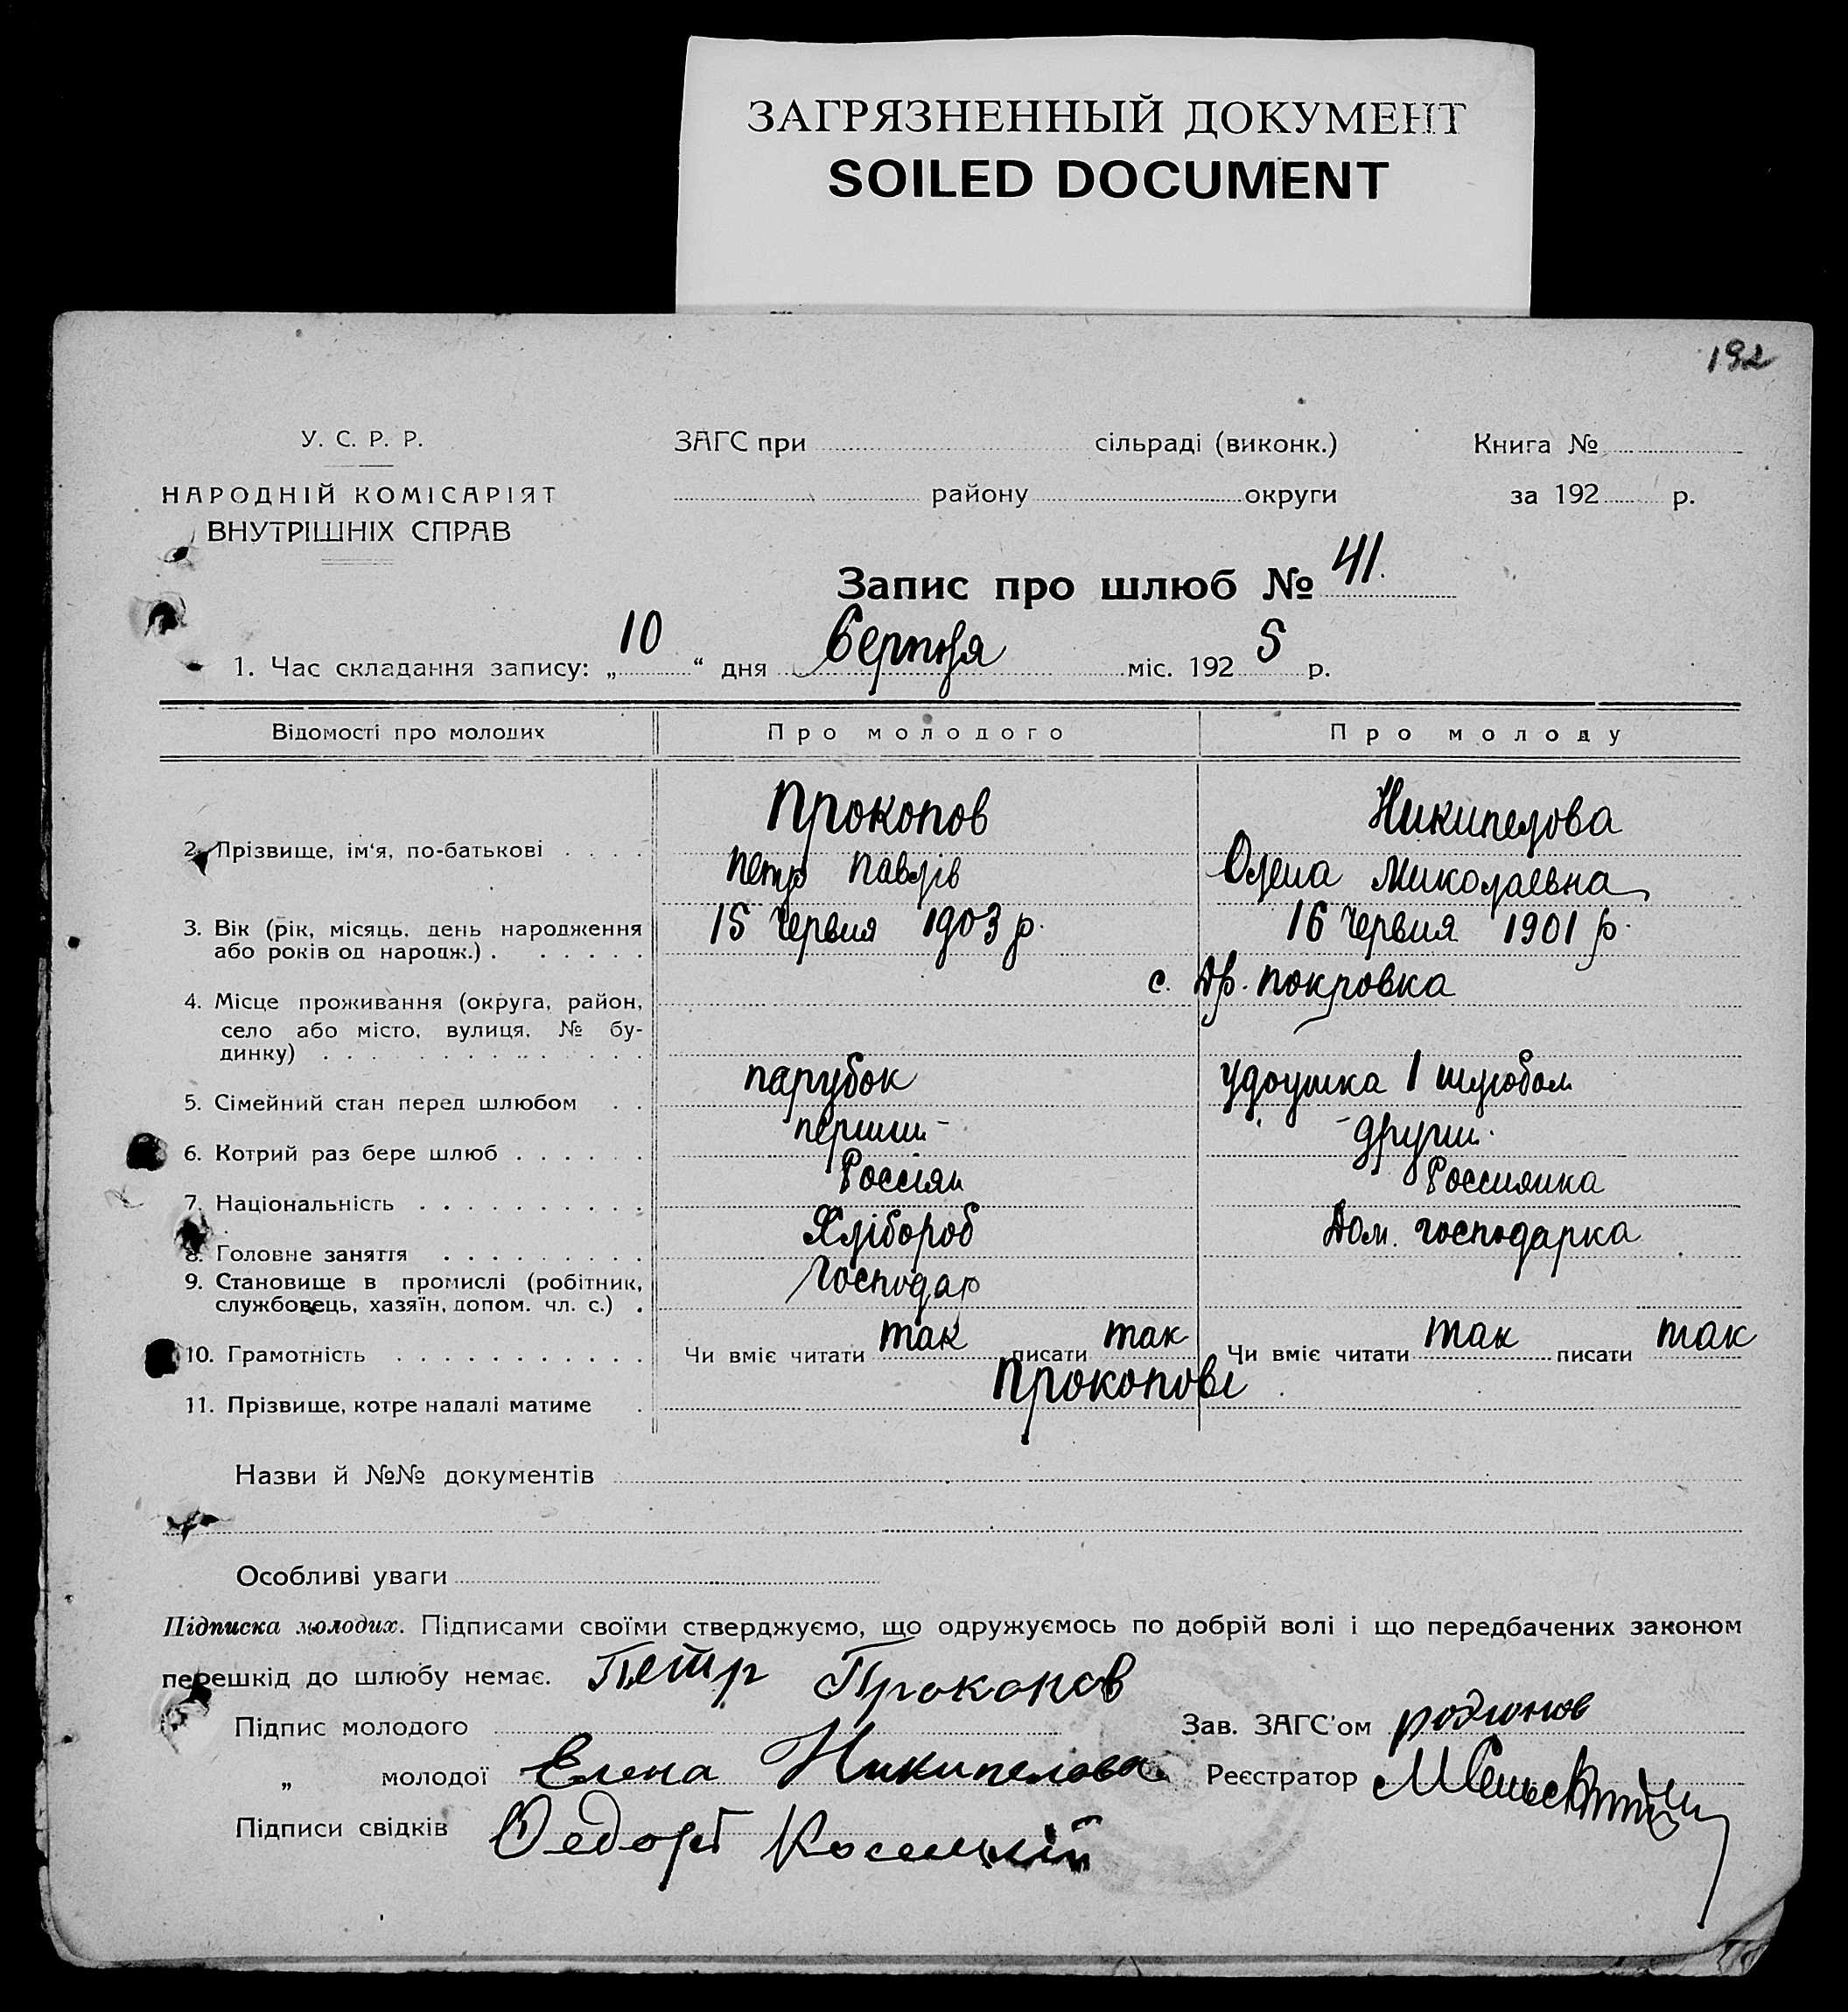 ЗАГРЯЗНЕННЫЙ ДОКУМЕНТ
SOILED DOCUMENT
192
У. С. Р. Р.
НАРОДНІЙ КОМІСАРІЯТ
ВНУТРІШНІХ СПРАВ
ЗАГС при сільраді (виконк.) Книга №
району округи за 192 р.
Запис про шлюб № 41.
1. Час складання запису: „10“ дня Серпня міс. 1925 р.
Відомості про молодих Про молодого Про молоду
Прокопов Никипелова
2. Прізвище, ім‘я, по-батькові Петр Павлів Олена Миколаевна
3. Вік (рік, місяць, день народження 15 Червня 1903 р. 16 Червня 1901 р.
або років од народж.)
с. Др. Покровка
4. Місце проживання (округа, район,
село або місто, вулиця, № бу-
динку)
5. Сімейний стан перед шлюбом парубок удоушка 1 шлюбом
6. Котрий раз бере шлюб перший - - другий.
7. Національність Россіян Россиянка
8. Головне заняття Хлібороб Дом. господарка
9. Становище в промислі (робітник, Господар
службовець, хазяїн, допом. чл. с.)
10. Грамотність Чи вміє читати так писати так Чи вміє читати так писати так
11. Прізвище, котре надалі матиме Прокопові
Назви й №№ документів
Особливі уваги
Підписка молодих. Підписами своїми стверджуємо, що одружуємось по добрій волі і що передбачених законом
перешкід до шлюбу немає. Петр Прокопов
Підпис молодого Зав. ЗАГС‘ом родионов
„ молодої Елена Никипелова Реєстратор
Підписи свідків Федорѣ